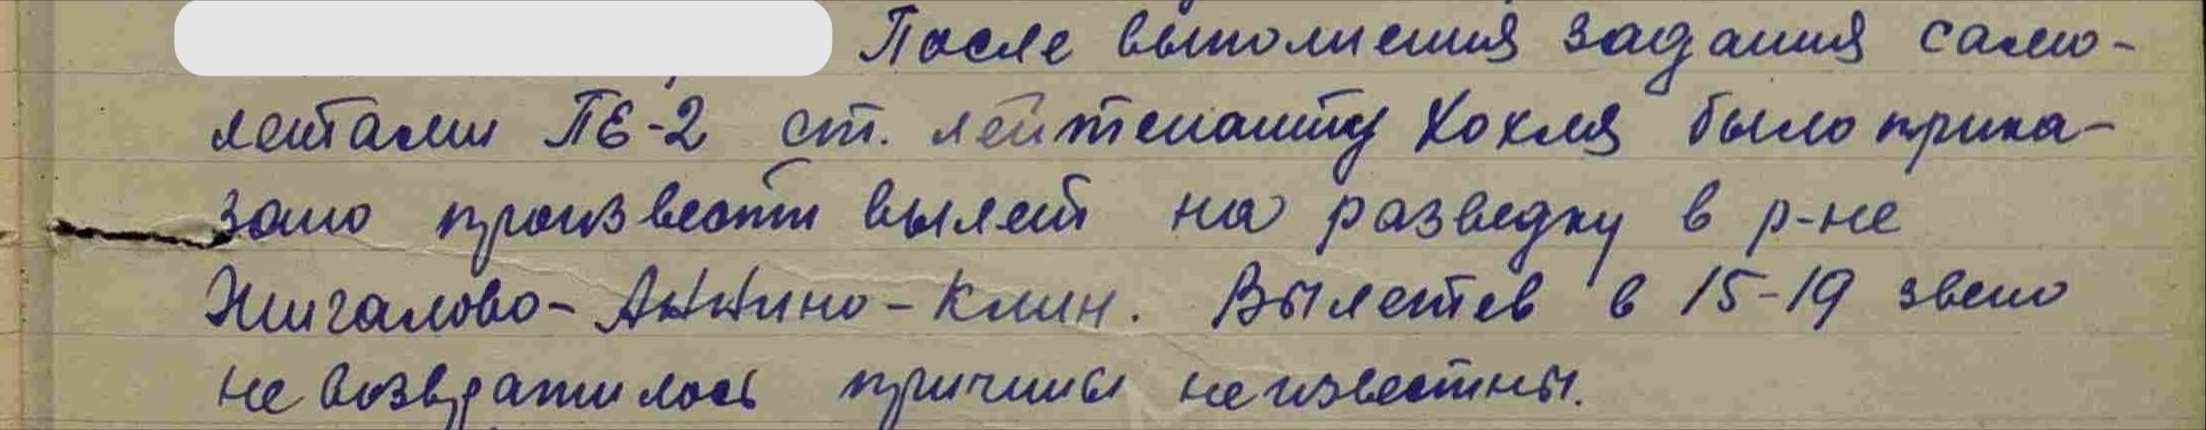 После выполнения задания само-
летами ПЕ-2 ст. лейтенанту Хохля было прика-
зано произвести вылет на разведку в р-не
Жигалово - Аннино - Клин. Вылетев в 15-19 звено
не возвратилось причины неизвестны.